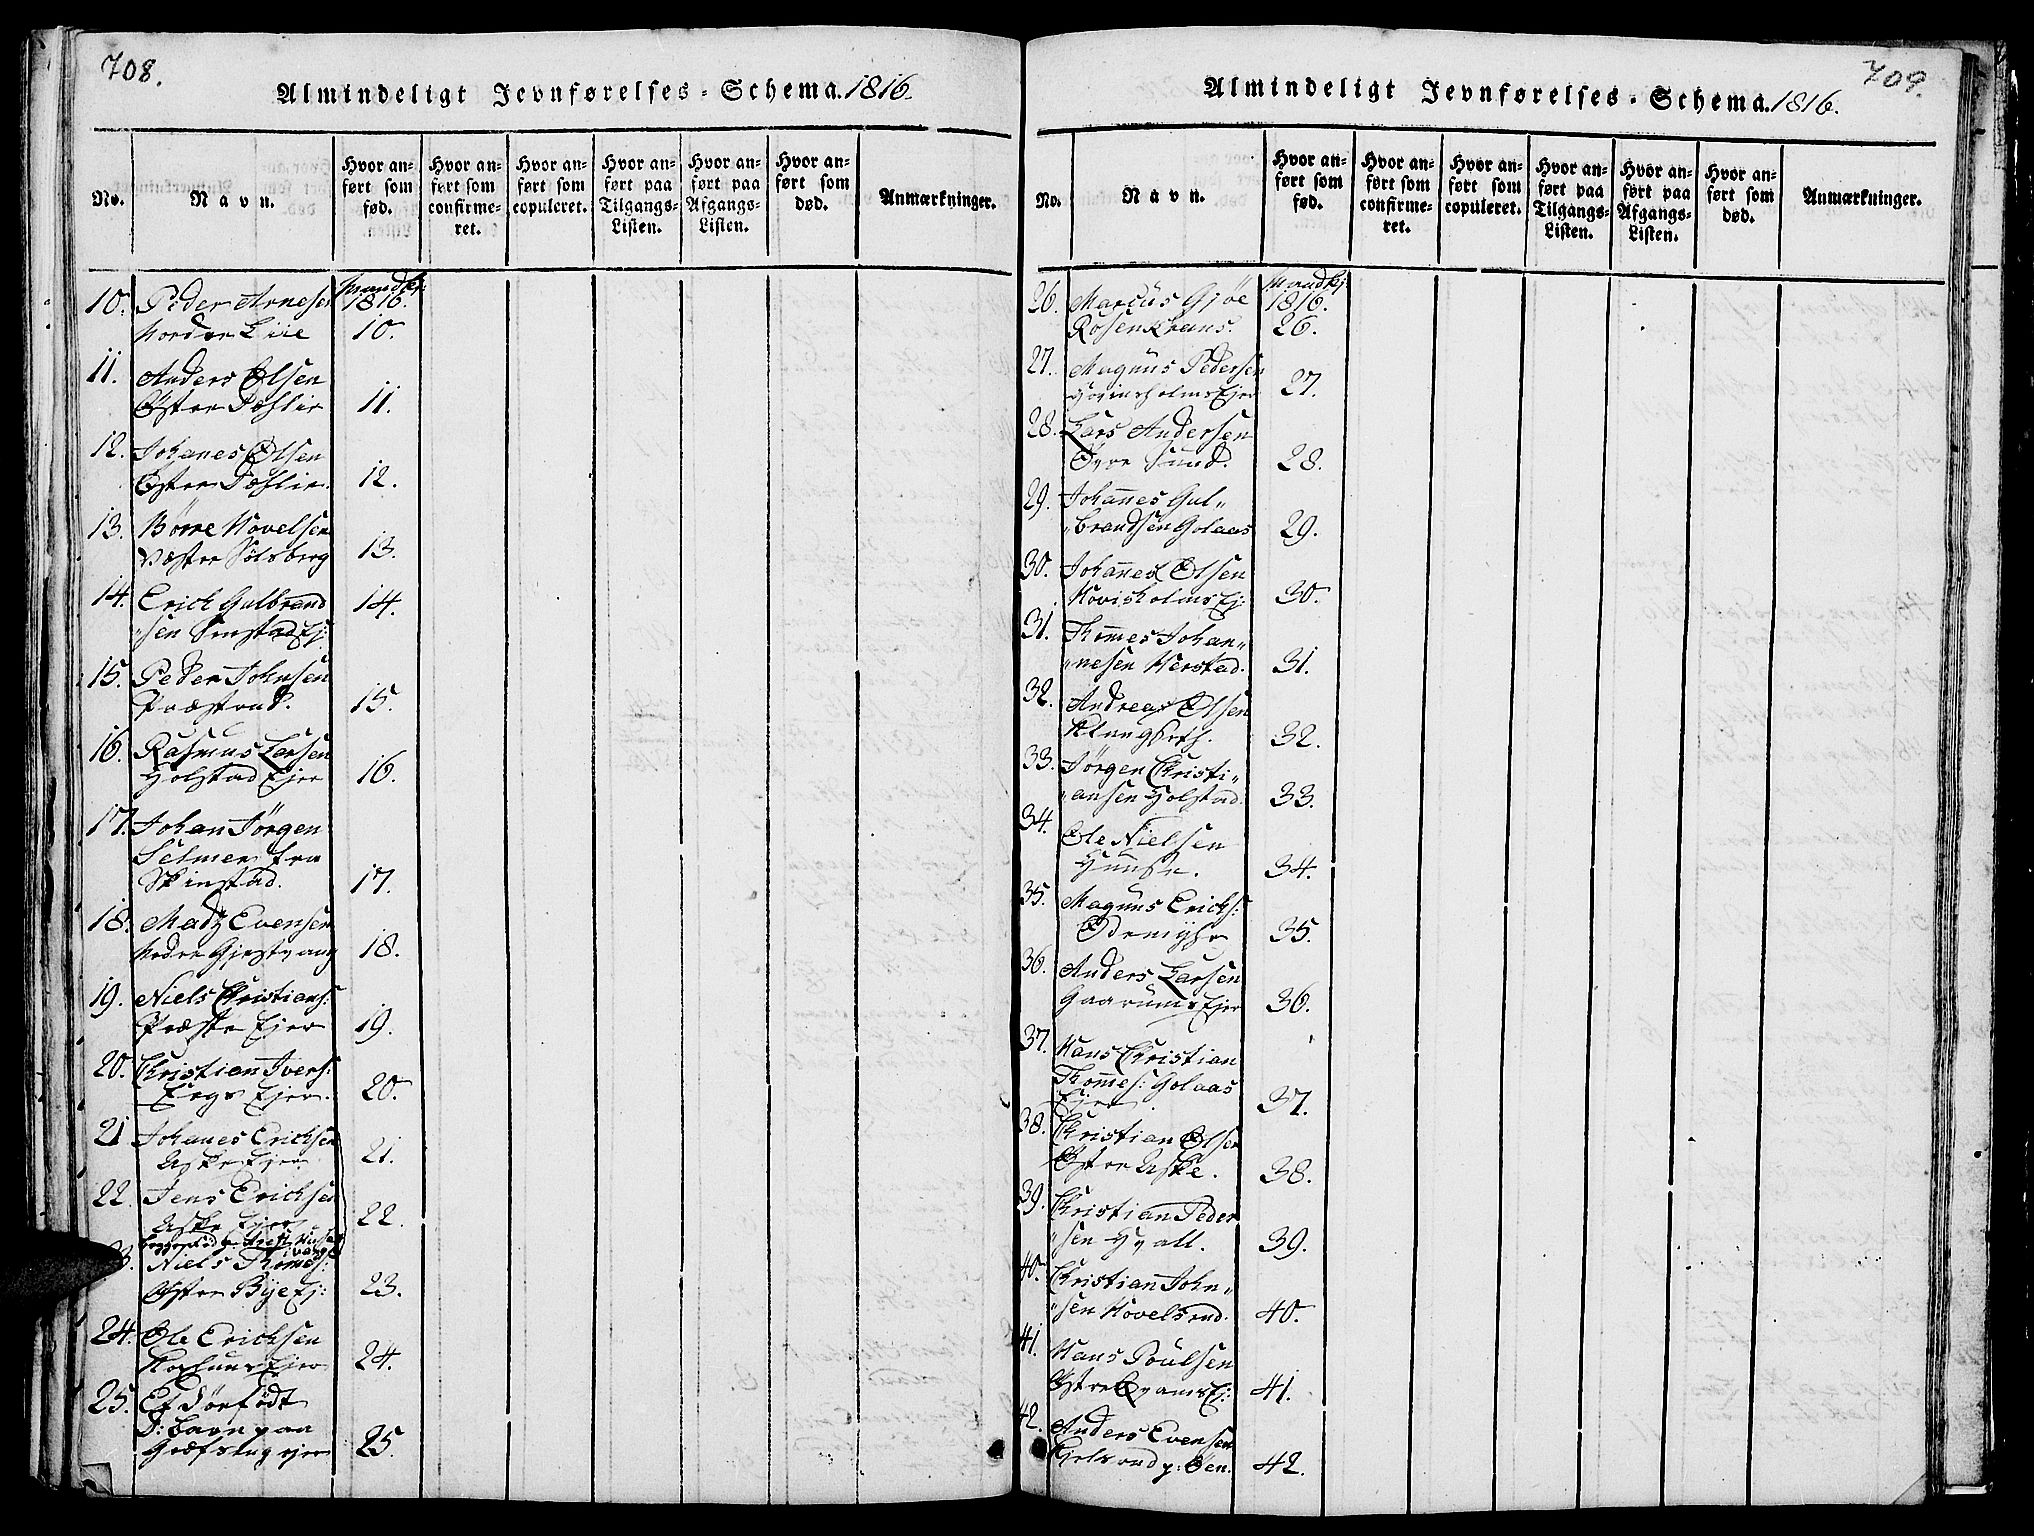 708.
Almindeligt Jevnførelses-Schema. 1816.
No.
Navn.
Hvor an-
ført som
fød.
Hvor an-
ført som
confirme-
ret.
Hvor an-
ført som
copuleret.
Hvor an-
ført paa
Tilgangs-
Listen.
Hvor an-
ført paa
Afgangs-
Listen.
Hvor an-
ført som
død.
Anmærkninger.
Mandkj:
10. Peder Arnesen 1816.
Nordre Liie 10.
11. Anders Olsen
Østre Pæslie 11.
12. Johanes Olsen
Østre Pæslie. 12.
13. Börre Hovelsen
Væstre Sölsberg 13.
14. Erick Gulbrand 14.
"sen Ej:
15. Peder Johnsen
Præsterud. 15.
16. Rasmus Larsen
Holstad Ejer 16.
17. Johan Jörgen
Selmer fra
Skinstad. 17.
18. Madz Evensen
Nedre Gjestvang 18.
19. Niels Christians:
Præste Ejer 19.
20. Christian Ivers:
Ejer. 20.
21 Johanes Erichsen
Aske Ejer 21.
22. Jens Erichsen
Aske Ejer 22.
Niels Thomes:
Østre Bye Ej: 23.
24. Ole Erichsen
Ejer 24.
25. Et dörfödt
D: Barn paa
Græfstug ejer 25.
709.
Almindeligt Jevnførelses-Schema. 1816.
No.
Navn.
Hvor an-
ført som
fød.
Hvor an-
ført som
confirme-
ret.
Hvor an-
ført som
copuleret.
Hvor an-
ført paa
Tilgangs-
Listen.
Hvor an-
ført paa
Afgangs-
Listen.
Hvor an-
ført som
død.
Anmærkninger.
Mandkj:
26. Marcus Gjöe 1816.
Rosenkrans. 26.
27. Magnus Pedersen
Hovinsholms Ejer 27.
28. Lars Andersen
Øvre Sund. 28.
29. Johannes Gul"
"brandsen Golaas 29.
30. Johannes Olsen
Hovisholms Ej: 30.
31. Thomes Johan"
"nesen Herstad. 31.
32. Andreas Olsen
32.
33. Jörgen Christi"
"ansen Holstad. 33.
34. Ole Nielsen
34.
35. Magnus Erichs:
35.
36. Anders Larsen
Gaarums Ejer 36.
37. Hans Christian
Thomes: Golaas
Ejer 37.
38. Christian Olsen
Østre Aske. 38.
39. Christian Peder
"sen 39.
40. Christian John"
"sen Hovelsrud. 40.
41. Hans Poulsen
Østre Ej: 41.
42. Anders Evensen
p: Öen. 42.